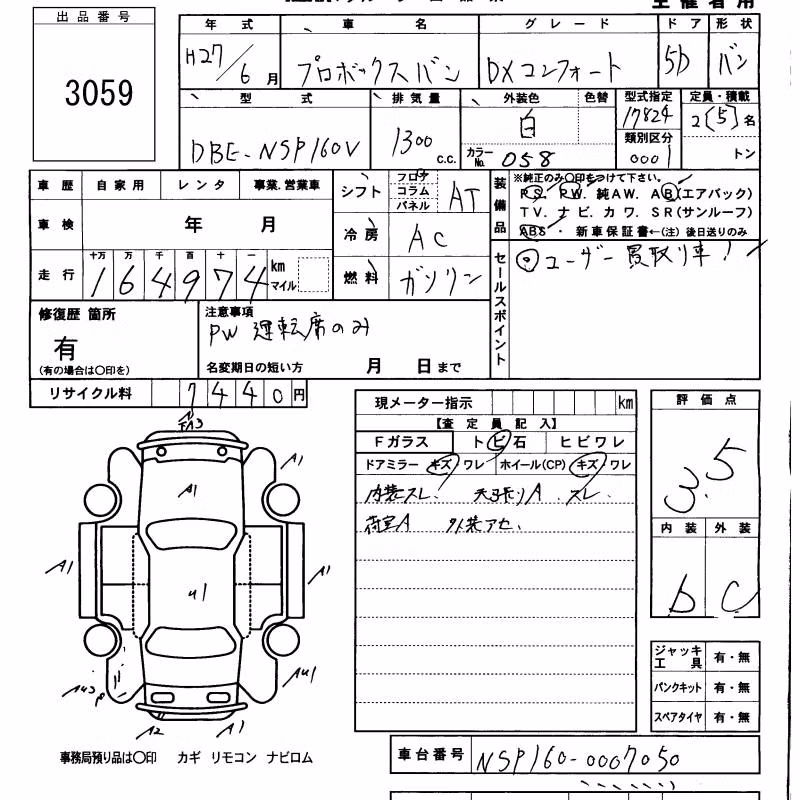 主催者用
出品番号
3059
年式 車名 グレード ドア 形状
H27/6月 プロボックスバン DXコンフォート 5D バン
型式 排気量 外装色 色替 型式指定 定員・積載
DBE-NSP160V 1300 c.c. 白 17824 2(5)名
カラーNo. 058 類別区分 0001 トン
車歴 自家用 レンタ 事業.営業車
シフト フロア コラム パネル AT
装備品 ※純正のみ〇印をつけて下さい。
PS. PW. 純AW. AB(エアバック)
TV. ナビ. カワ. SR(サンルーフ)
ABS ・ 新車保証書←(注) 後日送りのみ
車検 年 月
冷房 AC
走行 十万 万 千 百 十 一
164974 km マイル
燃料 ガソリン
セールスポイント
ユーザー買取り車!
修復歴 箇所
有
(有の場合は〇印を)
注意事項
PW 運転席のみ
名変期日の短い方 月 日まで
リサイクル料 7440円
現メーター指示 km
【査定員記入】
Fガラス トビ石 ヒビワレ
ドアミラー キズ・ワレ ホイール(CP) キズ・ワレ
内装スレ. 天張りA スレ.
荷室A 外装アセ.
評価点
3.5
内装 外装
b C
ジャッキ工具 有・無
パンクキット 有・無
スペアタイヤ 有・無
A1
A1
A1
U1
A1
AU1
A2
A1
事務局預り品は〇印 カギ リモコン ナビロム
車台番号 NSP160-0007050